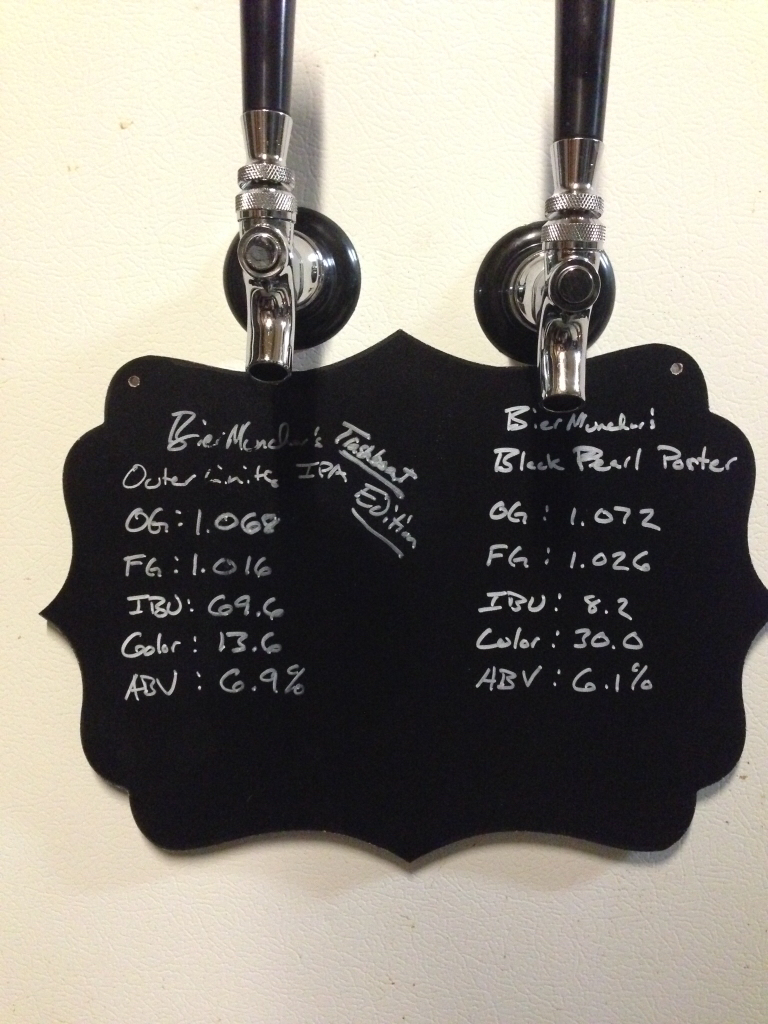 BierMuncher's
Outer Limits IPA
Trashboat
Edition
OG: 1.068
FG: 1.016
IBU: 69.6
Color: 13.6
ABV: 6.9%
BierMuncher's
Black Pearl Porter
OG: 1.072
FG: 1.026
IBU: 8.2
Color: 30.0
ABV: 6.1%